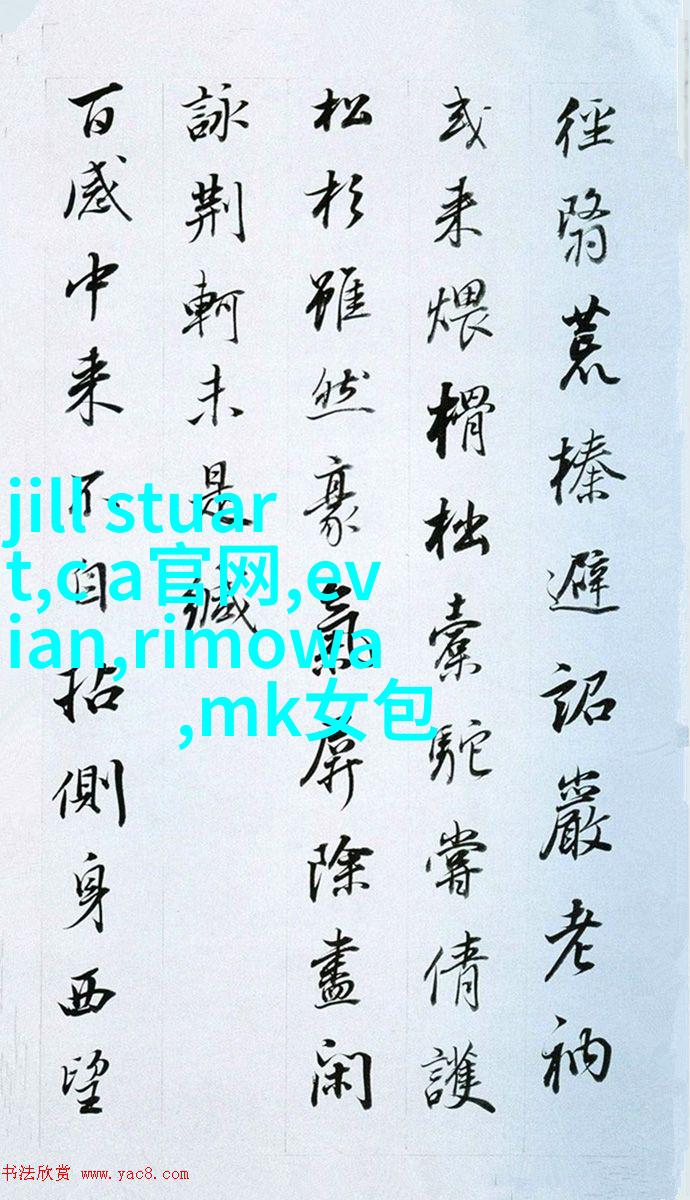 徑翳荒榛避詔巖老衲
或来煨榾柮橐駝嘗倩護
松杉雖然豪氣屏除盡闲
詠荆軻未是緘
百感中来不自拈側身西望
jill stuar
t,ca官网,ev
ian,rimowa
,mk女包
书法欣赏 www.yac8.com